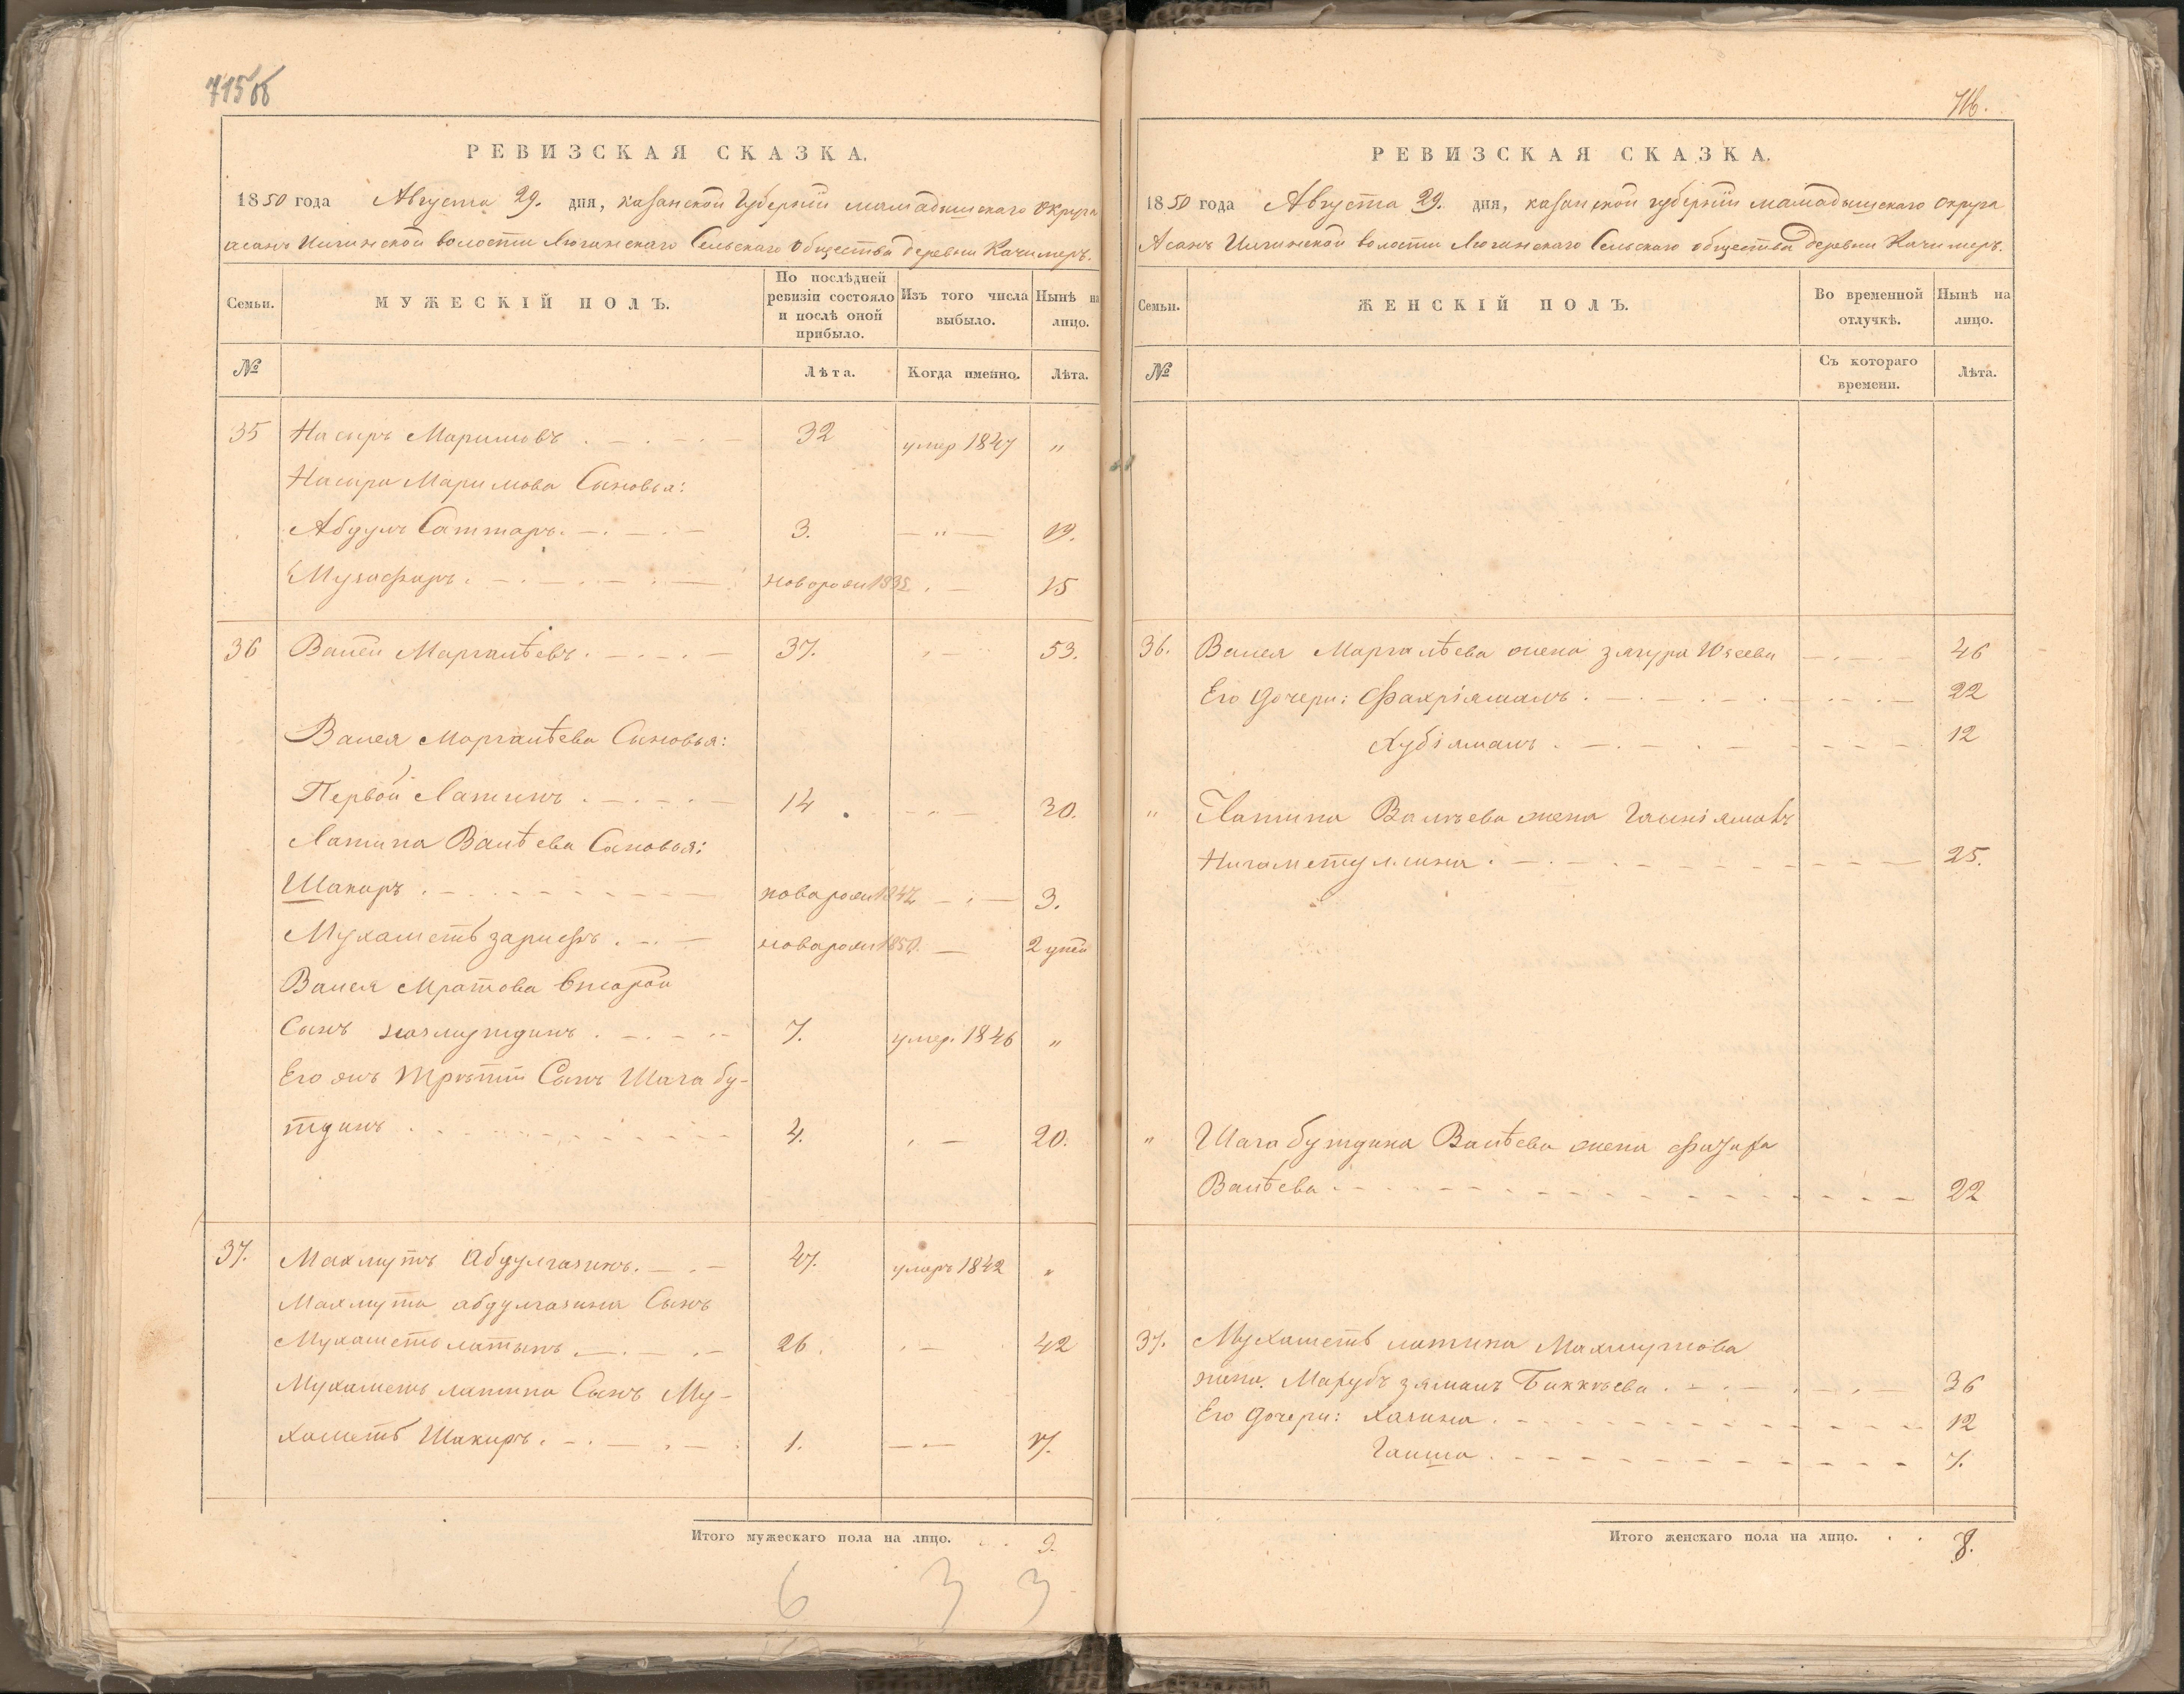 715об
РЕВИЗСКАЯ СКАЗКА.
1850 года Августа 29. дня, казанской Губерніи мамадышскаго округа
асанъ Илгинской волости Люгинскаго Сельскаго Общества деревни Качимеръ.
Семьи.
МУЖЕСКІЙ ПОЛЪ.
По послѣдней ревизіи состояло и послѣ оной прибыло.
Изъ того числа выбыло.
Нынѣ на лицо.
№
Лѣта.
Когда именно.
Лѣта.
35 Насыръ Маримовъ 32 умер 1847 "
Насыра Маримова Сыновья:
Абдулъ Саттаръ. 3. " 19.
Музафаръ. новорожи 1835 15
36 Валей Маргалѣевъ. 37. 53.
Валея Маргалѣева Сыновья:
Первой Латипъ 14 30.
Латипа Валѣева Сыновья:
Шакиръ новорожи 1847 3.
Мухаметь зарифъ новорожи 1850. 2 дней
Валея Мратова второй
Сынъ 7. умер. 1846 "
Его жъ третій Сынъ Шагабу-
тдинъ 4. 20.
37. Махмутъ Абдулгазинъ. 47. умеръ 1842 "
Махмута абдулгазина Сынъ
Мухаметь латыпъ 26. 42
Мухаметь латипа Сынъ Му-
хаметь Шакиръ. 1. 17.
Итого мужескаго пола на лицо. 9.
6 3 3
716.
РЕВИЗСКАЯ СКАЗКА.
1850 года Августа 29. дня, казанской губерніи мамадышскаго округа
Асанъ Илгинской волости Люгинскаго Сельскаго общества деревни Качимеръ.
Семьи.
ЖЕНСКІЙ ПОЛЪ.
Во временной отлучкѣ.
Нынѣ на лицо.
№
Съ котораго времени.
Лѣта.
36. Валея Маргалѣева жена зягура Юзеева 46
Его дочери: Фахріямалъ 22
Хубіямалъ 12
" Латипа Валѣева жена Гайніямалъ
Нигаметуллина 25.
" Шагабутдина Валѣева жена
Валѣева 22
37. Мухаметь латипа Махмутова
жена. Махубъ зямалъ Биккѣева 36
Его дочери: Хазина 12
Гайша 7.
Итого женскаго пола на лицо. 8.